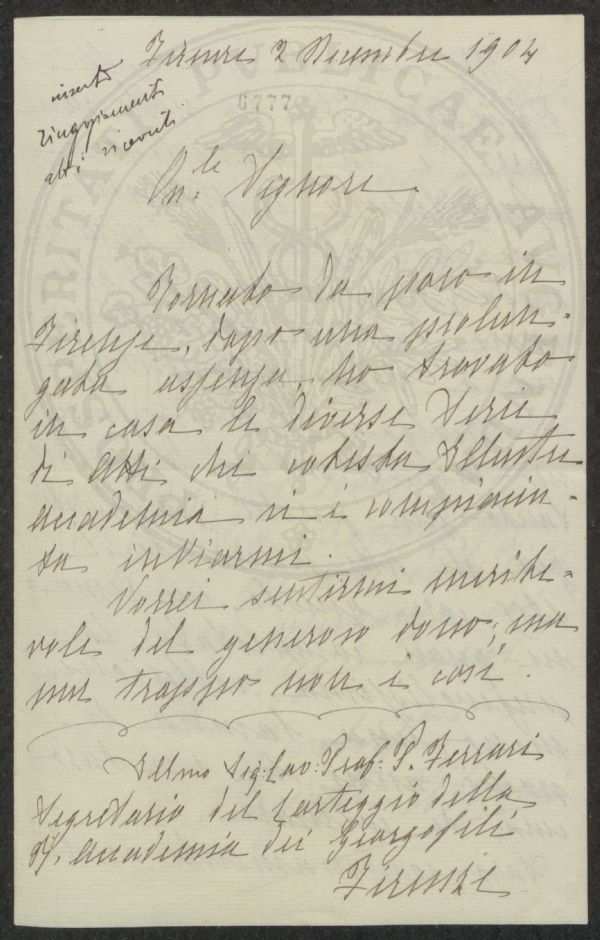 Firenze 2 Dicembre 1904
inserto
ringraziamenti
atti ricevuti.
6777
PROSPERITATI PUBLICAE AUGENDAE
On.le Signore.
Tornato da poco in
Firenze, dopo una prolun-
gata assenza, ho trovato
in casa le diverse Serie
di Atti che cotesta Illustre
Accademia si è compiaciu-
ta inviarmi.
Vorrei sentirmi merite-
vole del generoso dono; ma
pur troppo non è così.
Illmo Sig: Cav: Prof: P. Ferrari
Segretario del Carteggio della
R. Accademia dei Georgofili
Firenze